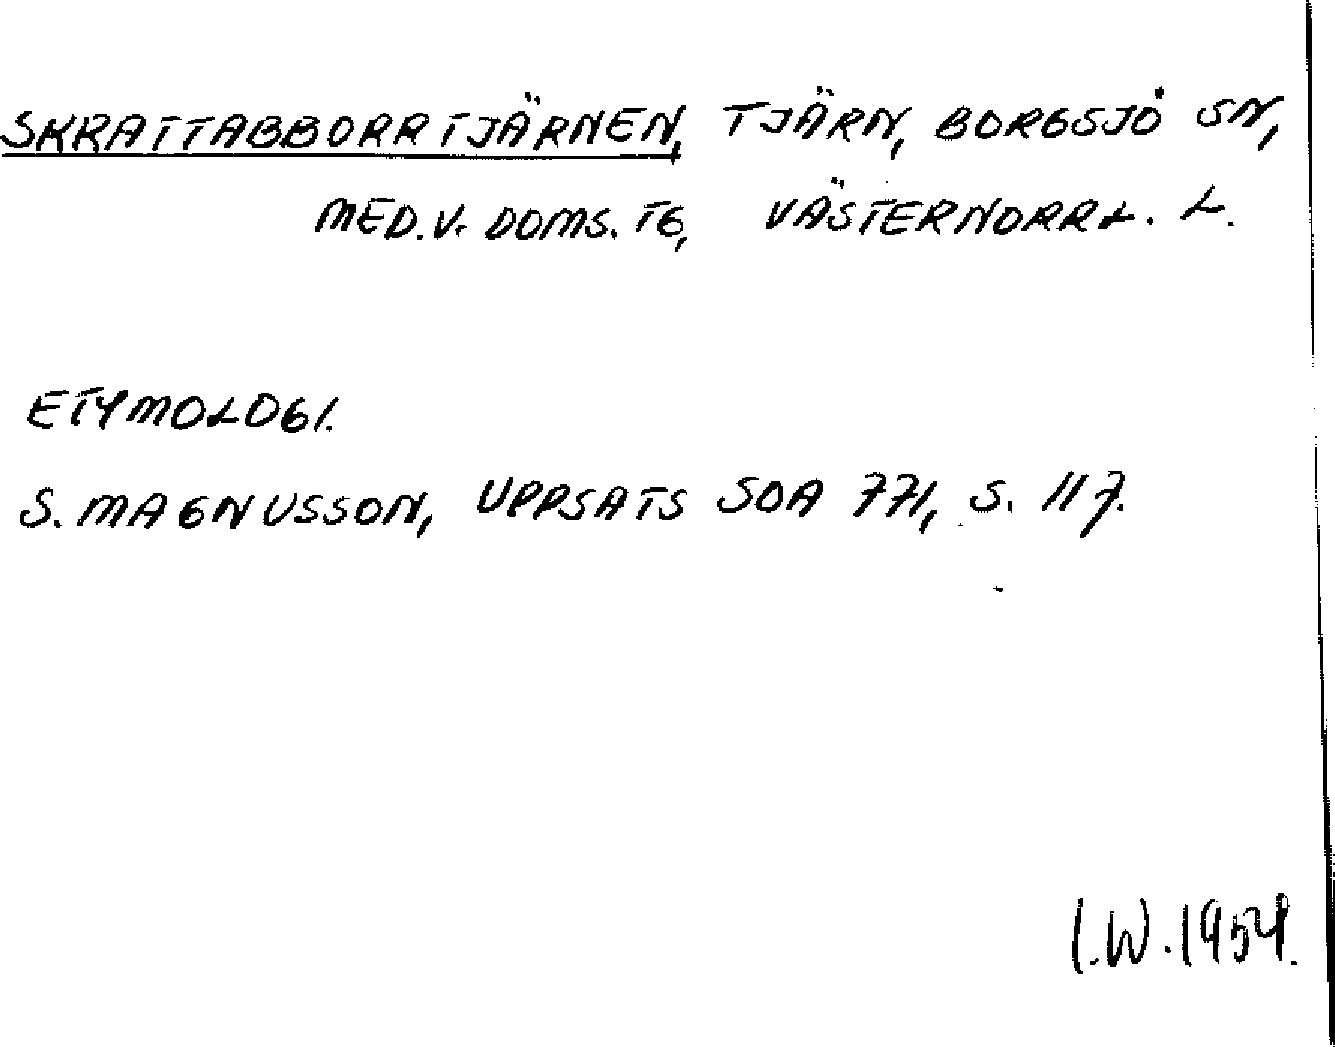 SKRATTABBORRTJÄRNEN, TJÄRN, BORGSJÖ SN,
MED. V. DOMS. TG, VÄSTERNORRL. L.
ETYMOLOGI.
S. MAGNUSSON, UPPSATS SOA 771, S. 117.
I.W. 1954.